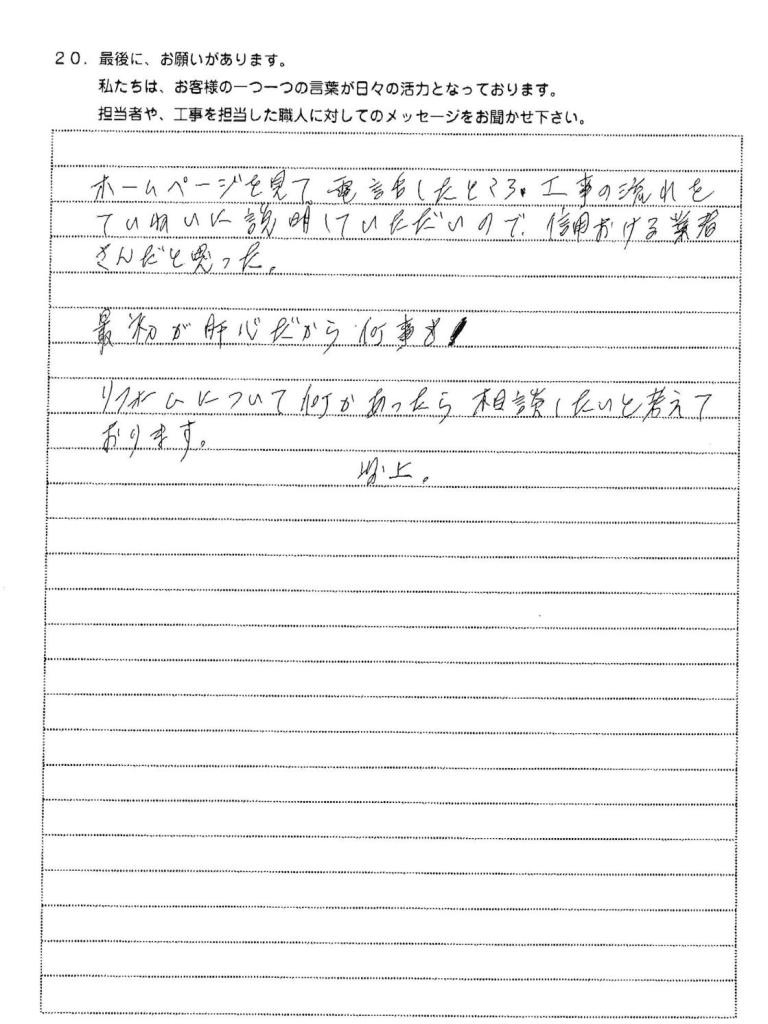 20. 最後に、お願いがあります。
私たちは、お客様の一つ一つの言葉が日々の活力となっております。
担当者や、工事を担当した職人に対してのメッセージをお聞かせ下さい。
ホームページを見て電話したところ、工事の流れを
ていねいに説明していただいので、信用おける業者
さんだと思った。
最初が肝心だから何事も!
リフォームについて何かあったら相談したいと考えて
おります。
以上。